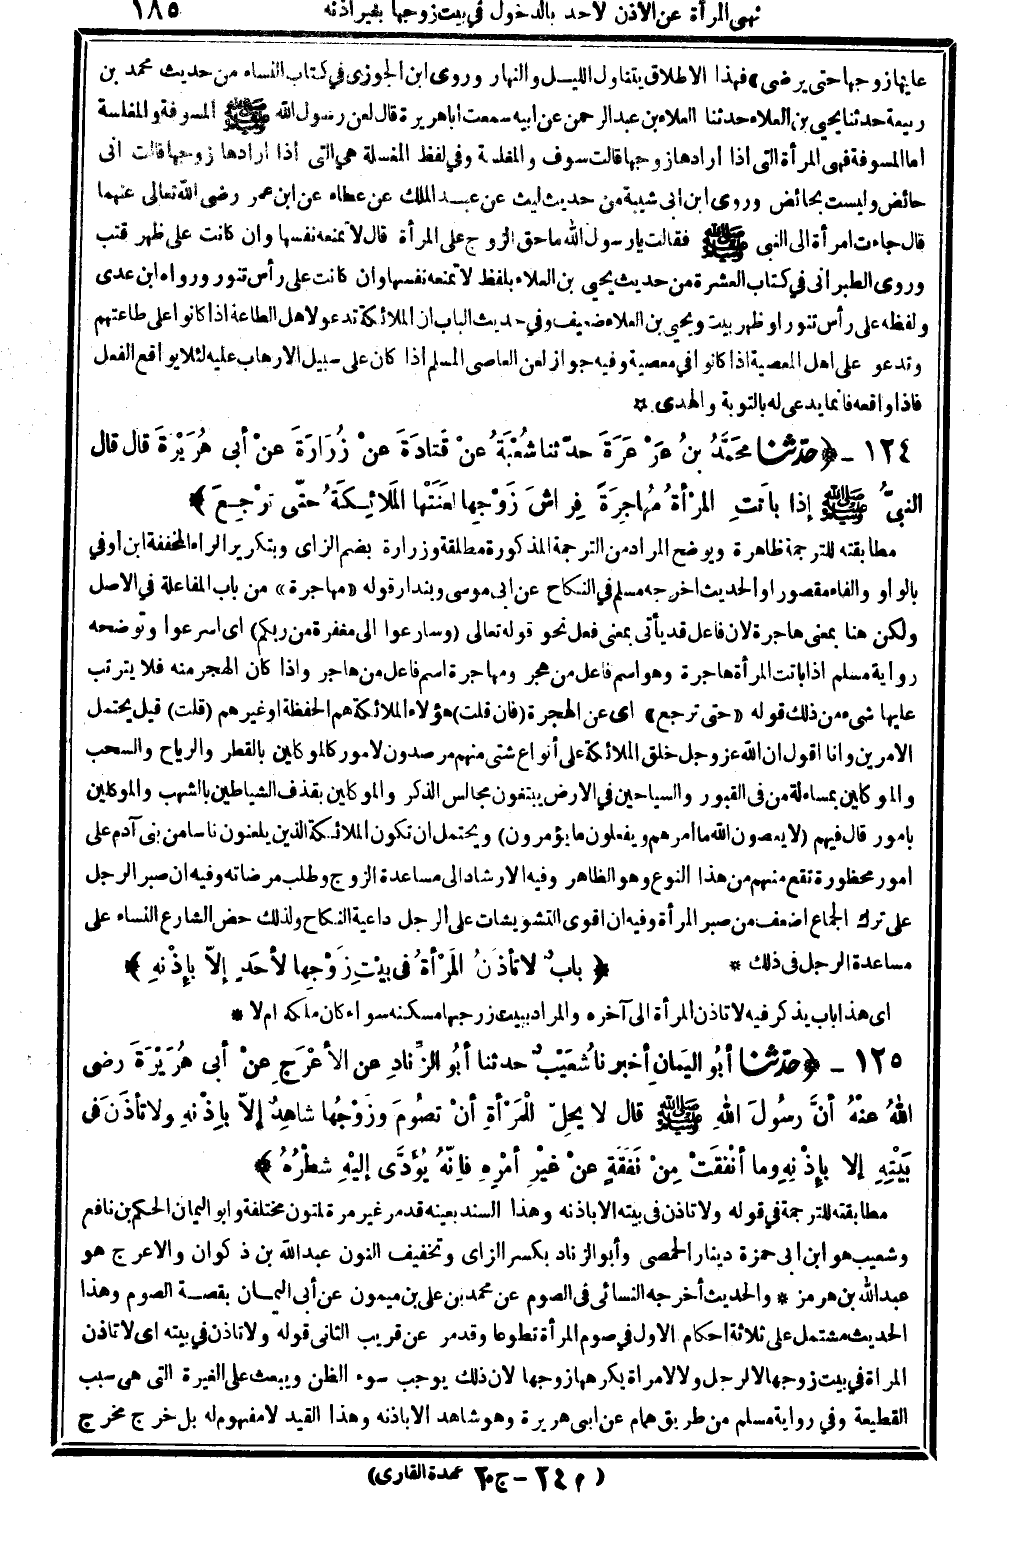 نهى المرأة عن الاذن لاحد بالدخول في بيت زوجها بغير اذنه ١٨٥
عليها زوجها حتى يرضى» فهذا الاطلاق يتناول الليل والنهار وروى ابن الجوزى في كتاب النساء من حديث محمد بن
ربيعة حدثنا يحيى بن العلاء حدثنا العلاء بن عبد الرحمن عن ابيه سمعت اباهريرة قال لعن رسول الله ﷺ المسوفة والمفلسة
اما المسوفة فهى المرأة التى اذا ارادها زوجها قالت سوف والمفلسة وفي لفظ المغسلة هي التى اذا ارادها زوجها قالت انى
حائض وليست بحائض وروى ابن ابى شيبة من حديث ليث عن عبد الملك عن عطاء عن ابن عمر رضى الله تعالى عنهما
قال جاءت امرأة الى النبى ﷺ فقالت يارسول الله ما حق الزوج على المرأة قال لا تمنعه نفسها وان كانت على ظهر قتب
وروى الطبرانى في كتاب العشرة من حديث يحيى بن العلاء بلفظ لا تمنعه نفسها وان كانت على رأس تنور ورواه ابن عدى
ولفظه على رأس تنور او ظهر بيت ويحيى بن العلاء ضعيف وفي حديث الباب ان الملائكة تدعو لاهل الطاعة اذا كانوا على طاعتهم
وتدعو على اهل المعصية اذا كانوا في معصية وفيه جواز لعن العاصى المسلم اذا كان على سبيل الارهاب عليه لئلا يواقع الفعل
فاذا واقعه فانما يدعى له بالتوبة والهدى *
١٢٤ - ﴿حدّثنا محمّدُ بنُ عَرْعَرَةَ حدّثنا شُعْبَةُ عنْ قَتادَةَ عنْ زُرَارَةَ عنْ أبى هُرَيْرةَ قال قال
النبىُّ ﷺ إذا باتَتِ المرْأةُ مُهاجِرَةً فِراشَ زَوْجِها لَعَنَتْها المَلائِكَةُ حتّى ترْجِعَ ﴾
مطابقته للترجمة ظاهرة ويوضح المراد من الترجمة المذكورة مطلقة وزرارة بضم الزاى وبتكرير الراء المخففة ابن اوفي
بالواو والفاء مقصور او الحديث اخرجه مسلم في النكاح عن ابى موسى وبندار قوله «مهاجرة» من باب المفاعلة في الاصل
ولكن هنا بمعنى هاجرة لان فاعل قد يأتى بمعنى فعل نحو قوله تعالى (وسارعوا الى مغفرة من ربكم) اى اسرعوا وتوضحه
رواية مسلم اذا باتت المرأة هاجرة وهو اسم فاعل من هجر ومهاجرة اسم فاعل من هاجر واذا كان الهجر منه فلا يترتب
عليها شىء من ذلك قوله «حتى ترجع» اى عن الهجرة (فان قلت) هؤلاء الملائكة هم الحفظة او غيرهم (قلت) قيل يحتمل
الامرين وانا اقول ان الله عز وجل خلق الملائكة على أنواع شتى منهم مرصدون لامور كالموكلين بالقطر والرياح والسحب
والموكلين بمساءلة من في القبور والسياحين في الارض يبتغون مجالس الذكر والموكلين بقذف الشياطين بالشهب والموكلين
بامور قال فيهم (لا يعصون الله ما امرهم ويفعلون ما يؤمرون) ويحتمل ان تكون الملائكة الذين يلعنون ناسا من بنى آدم على
امور محظورة تقع منهم من هذا النوع وهو الظاهر وفيه الارشاد الى مساعدة الزوج وطلب مرضاته وفيه ان صبر الرجل
على ترك الجماع اضعف من صبر المرأة وفيه ان اقوى التشويشات على الرجل داعية النكاح ولذلك حض الشارع النساء على
مساعدة الرجل في ذلك * ﴿ بابٌ لا تأذَنُ المَرْأةُ فى بيْتِ زَوْجِها لأحَدٍ إلاّ بإذْنِهِ ﴾
اى هذا باب يذكر فيه لا تاذن المرأة الى آخره والمراد ببيت زوجها مسكنه سواء كان ملكه ام لا *
١٢٥ - ﴿حدّثنا أبُو اليَمانِ أخبرنا شُعَيْبٌ حدثنا أبُو الزِّنادِ عنِ الأعْرَجِ عنْ أبى هُرَيْرَةَ رضى
اللهُ عنْهُ أنَّ رسُولَ اللهِ ﷺ قال لا يحِلّ لْلمَرْأةِ أنْ تصُومَ وزَوْجُها شاهِدٌ إلاّ بإذْنِهِ ولا تأذَنَ فى
بَيْتِهِ إلا بإِذْنِهِ وما أنْفَقَتْ مِنْ نَفَقَةٍ عنْ غيْرِ أمْرِهِ فإنّهُ يُؤَدَّى إليْهِ شطْرُهُ ﴾
مطابقته للترجمة في قوله ولا تاذن فى بيته الا باذنه وهذا السند بعينه قد مر غير مرة لمتون مختلفة وابو اليمان الحكم بن نافع
وشعيب هو ابن ابى حمزة دينار الحمصى وأبو الزناد بكسر الزاى وتخفيف النون عبد الله بن ذكوان والاعرج هو
عبد الله بن هرمز * والحديث أخرجه النسائى فى الصوم عن محمد بن على بن ميمون عن أبى اليمان بقصة الصوم وهذا
الحديث مشتمل على ثلاثة احكام الاول في صوم المرأة تطوعا وقد مر عن قريب الثانى قوله ولا تاذن في بيته اى لا تاذن
المرأة في بيت زوجها لا لرجل ولا لامرأة يكرهها زوجها لان ذلك يوجب سوء الظن ويبعث على الغيرة التى هى سبب
القطيعة وفي رواية مسلم من طريق همام عن ابى هريرة وهو شاهد الا باذنه وهذا القيد لا مفهوم له بل خرج مخرج
(م ٢٤ - ج ٢٠ عمدة القارى)